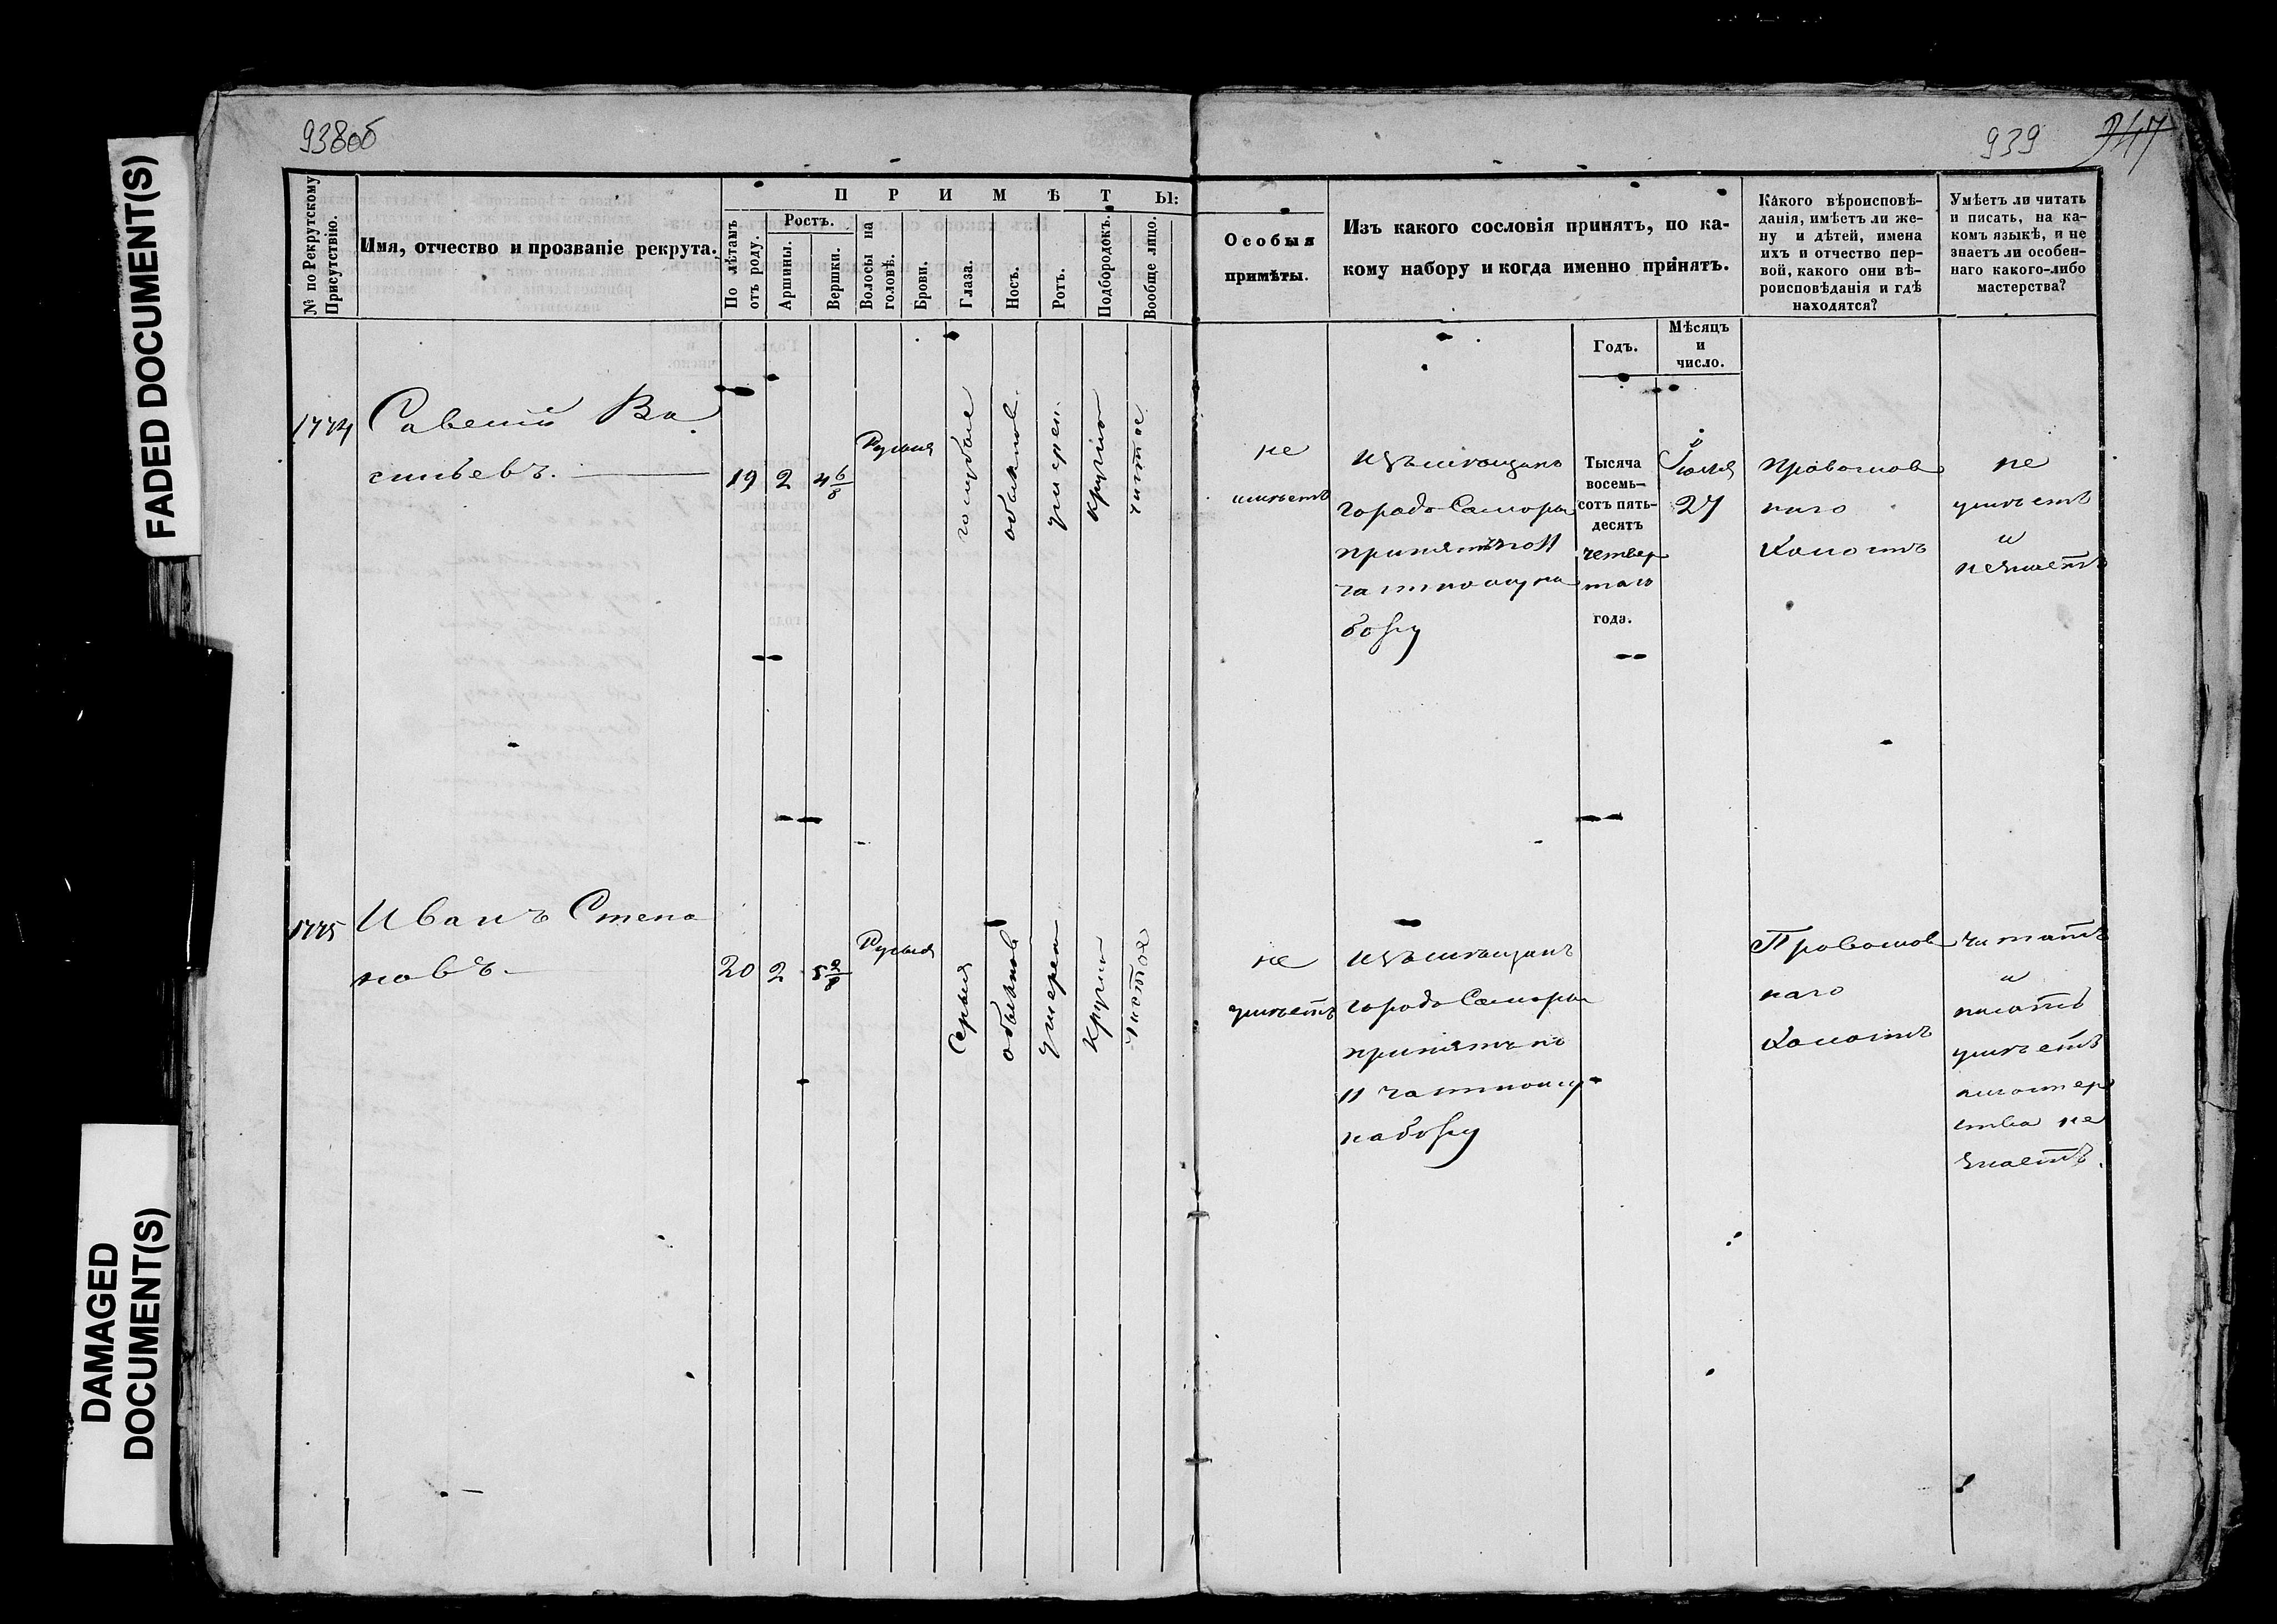 938об
939
947
FADED DOCUMENT(S)
DAMAGED
DOCUMENT(S)
№ по Рекрутскому
Присутствію.
Имя, отчество и прозваніе рекрута.
П Р И М Ѣ Т Ы:
По лѣтамъ
отъ роду.
Ростъ.
Аршины.
Вершки.
Волосы на
головѣ.
Брови.
Глаза.
Носъ.
Ротъ.
Подбородокъ.
Вообще лицо.
Особыя
примѣты.
Изъ какого сословія принятъ, по ка-
кому набору и когда именно принятъ.
Годъ.
Мѣсяцъ
и
число.
Какого вѣроисповѣ-
данія, имѣетъ ли же-
ну и дѣтей, имена
ихъ и отчество пер-
вой, какого они вѣ-
роисповѣданія и гдѣ
находятся?
Умѣетъ ли читать
и писать, на ка-
комъ языкѣ, и не
знаетъ ли особен-
наго какого-либо
мастерства?
1774
Савелій Ва
сильевъ.
19
2
4 6/8
Русыя
голубые
обыкнов.
умерен.
кругло
чистое
не
имѣетъ
Изъ мѣщанъ
города Самары
принятъ по 11
частному на
бору
Тысяча
восемь-
сотъ пять-
десятъ
четвер
таго
года.
Іюля
27
православ
наго
Холостъ
не
умѣетъ
и
не знаетъ
1775
Иванъ Степа
новъ.
20
2
Русыя
Серыя
обыкнов
умерен
кругло
чистое
не
имѣетъ
Изъ мѣщанъ
города Самары
принятъ по
11 частному
набору
Православ
наго
Холостъ
читать
и
писать
умѣетъ
мастер
ства не
знаетъ.